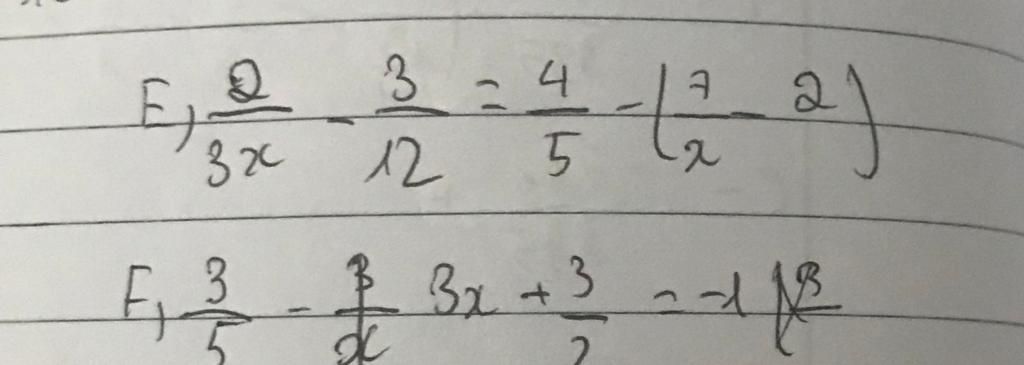 E, 2/3x - 3/12 = 4/5 - (7/x - 2)
F, 3/5 - 3x + 3/2 = -1